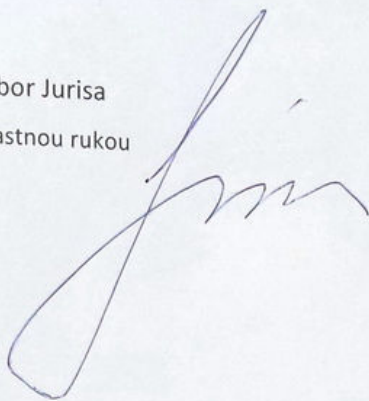 bor Jurisa
astnou rukou